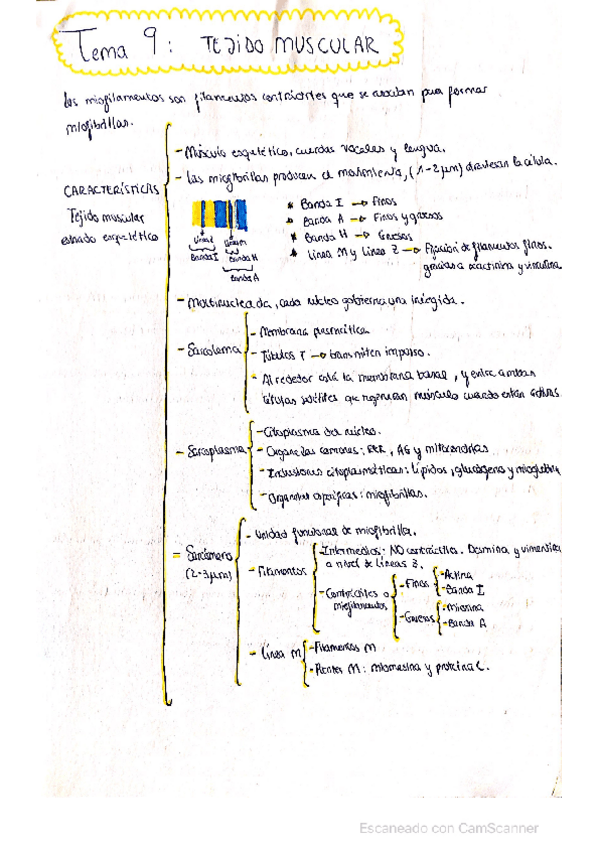 Tema 9: TEJIDO MUSCULAR
Los miofilamentos son filamentos contráctiles que se asocian para formar
miofibrillas.
CARACTERÍSTICAS
Tejido muscular
estriado esquelético
- Músculo esquelético, cuerdas vocales y lengua.
- Las miofibrillas producen el movimiento, (1-2μm) atraviesan la célula.
* Banda I → Finos
* Banda A → Finos y gruesos
* Banda H → Gruesos
* Línea M y Línea Z → Fijación de filamentos finos.
gracias a αactinina y vinculina
Línea Z
Línea M
Banda I
Banda H
Banda A
- Multinucleada, cada núcleo gobierna una
- Sarcolema
- Membrana plasmática
- Túbulos T → transmiten impulso.
- Alrededor está la membrana basal, y entre ambas
células satélites que regeneran músculo cuando están activas
- Sarcoplasma
- Citoplasma del núcleo.
- Organelas comunes: RER, AG y mitocondrias
- Inclusiones citoplasmáticas: lípidos, glucógeno y mioglobina
- Organelas específicas: miofibrillas.
- Sarcómero
(2-3μm)
- Unidad funcional de miofibrilla.
- Filamentos
- Intermedios: NO contráctiles. Desmina y vimentina
a nivel de líneas Z.
- Contráctiles o
miofilamentos
- Finos
- Actina
- Banda I
- Gruesos
- Miosina
- Banda A
- Línea M
- Filamentos M
- Puentes M: miomesina y proteína C.
Escaneado con CamScanner